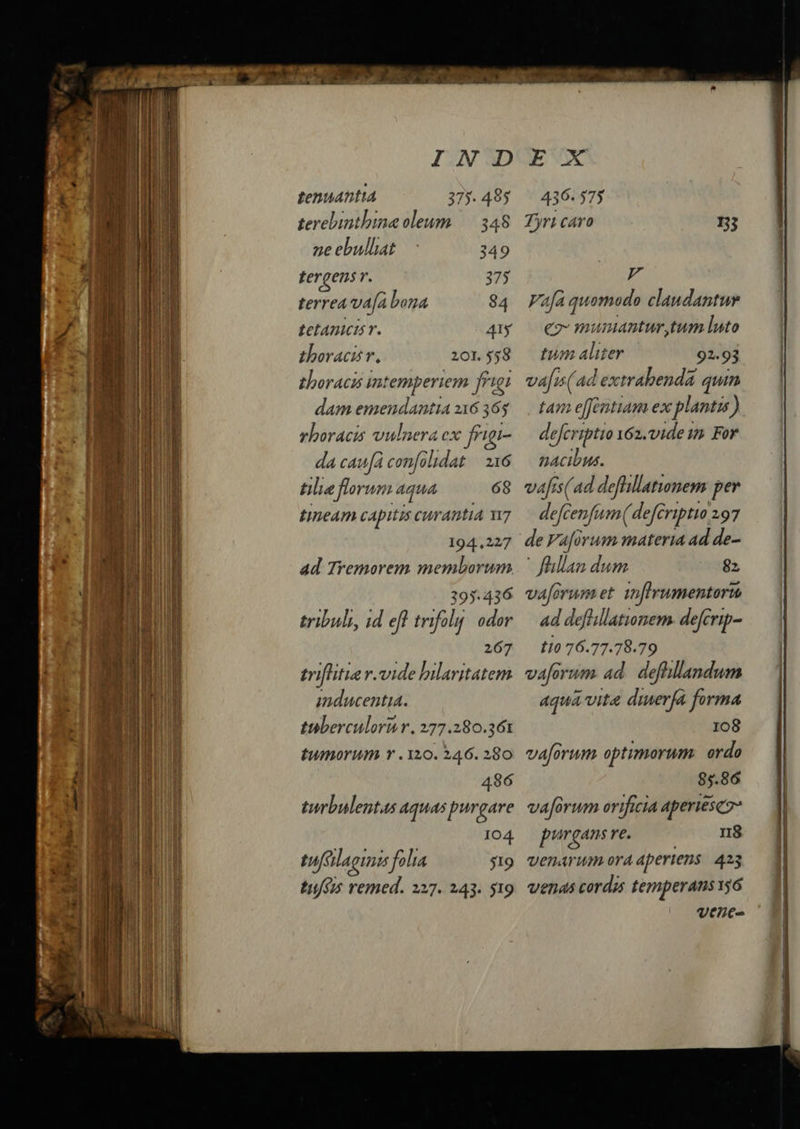 INDEX
tenuantia 375. 485
terebinthinæ oleum 348
ne ebulliat 349
tergens r. 375
terrea vaſa bona 84
tetanicis r. 415
thoracis r, 201. 558
thoracis intemperiem frigi
dam emendantia 216 365
rhoracis vulnera ex frigi-
da cauſa conſolidat 216
tiliæ florum aqua 68
tineam capitis curantia 117
194.227
ad Tremorem memborum
395.436
tribuli, id eſt trifolij odor
267
triſtitiæ r. vide hilaritatem
inducentia.
tuberculorū r. 277.280.361
tumorum r. 120. 246. 280
486
turbulentas aquas purgare
104
tuſsilaginis folia 519
tuſsis remed. 227. 243. 519
436. 575
Tyri caro 133
V
Vaſa quomodo claudantur
& muniantur, tum luto
tum aliter 92.93
vaſis (ad extrahendā quin
tam eſſentiam ex plantis)
deſcriptio 162. vide in For
nacibus.
vaſis (ad deſtillationem per
deſcenſum) deſcriptio 297
de Vaſorum materia ad de-
ſtillan dum 82
vaſorum et inſtrumentorū
ad deſtillationem deſcrip-
tio 76.77.78.79
vaſorum ad deſtillandum
aquā vitæ diuerſa forma
108
vaſorum optimorum ordo
85.86
vaſorum orificia aperies &
purgans re. 118
venarum ora aperiens 423
venas cordis temperans 156
vene-